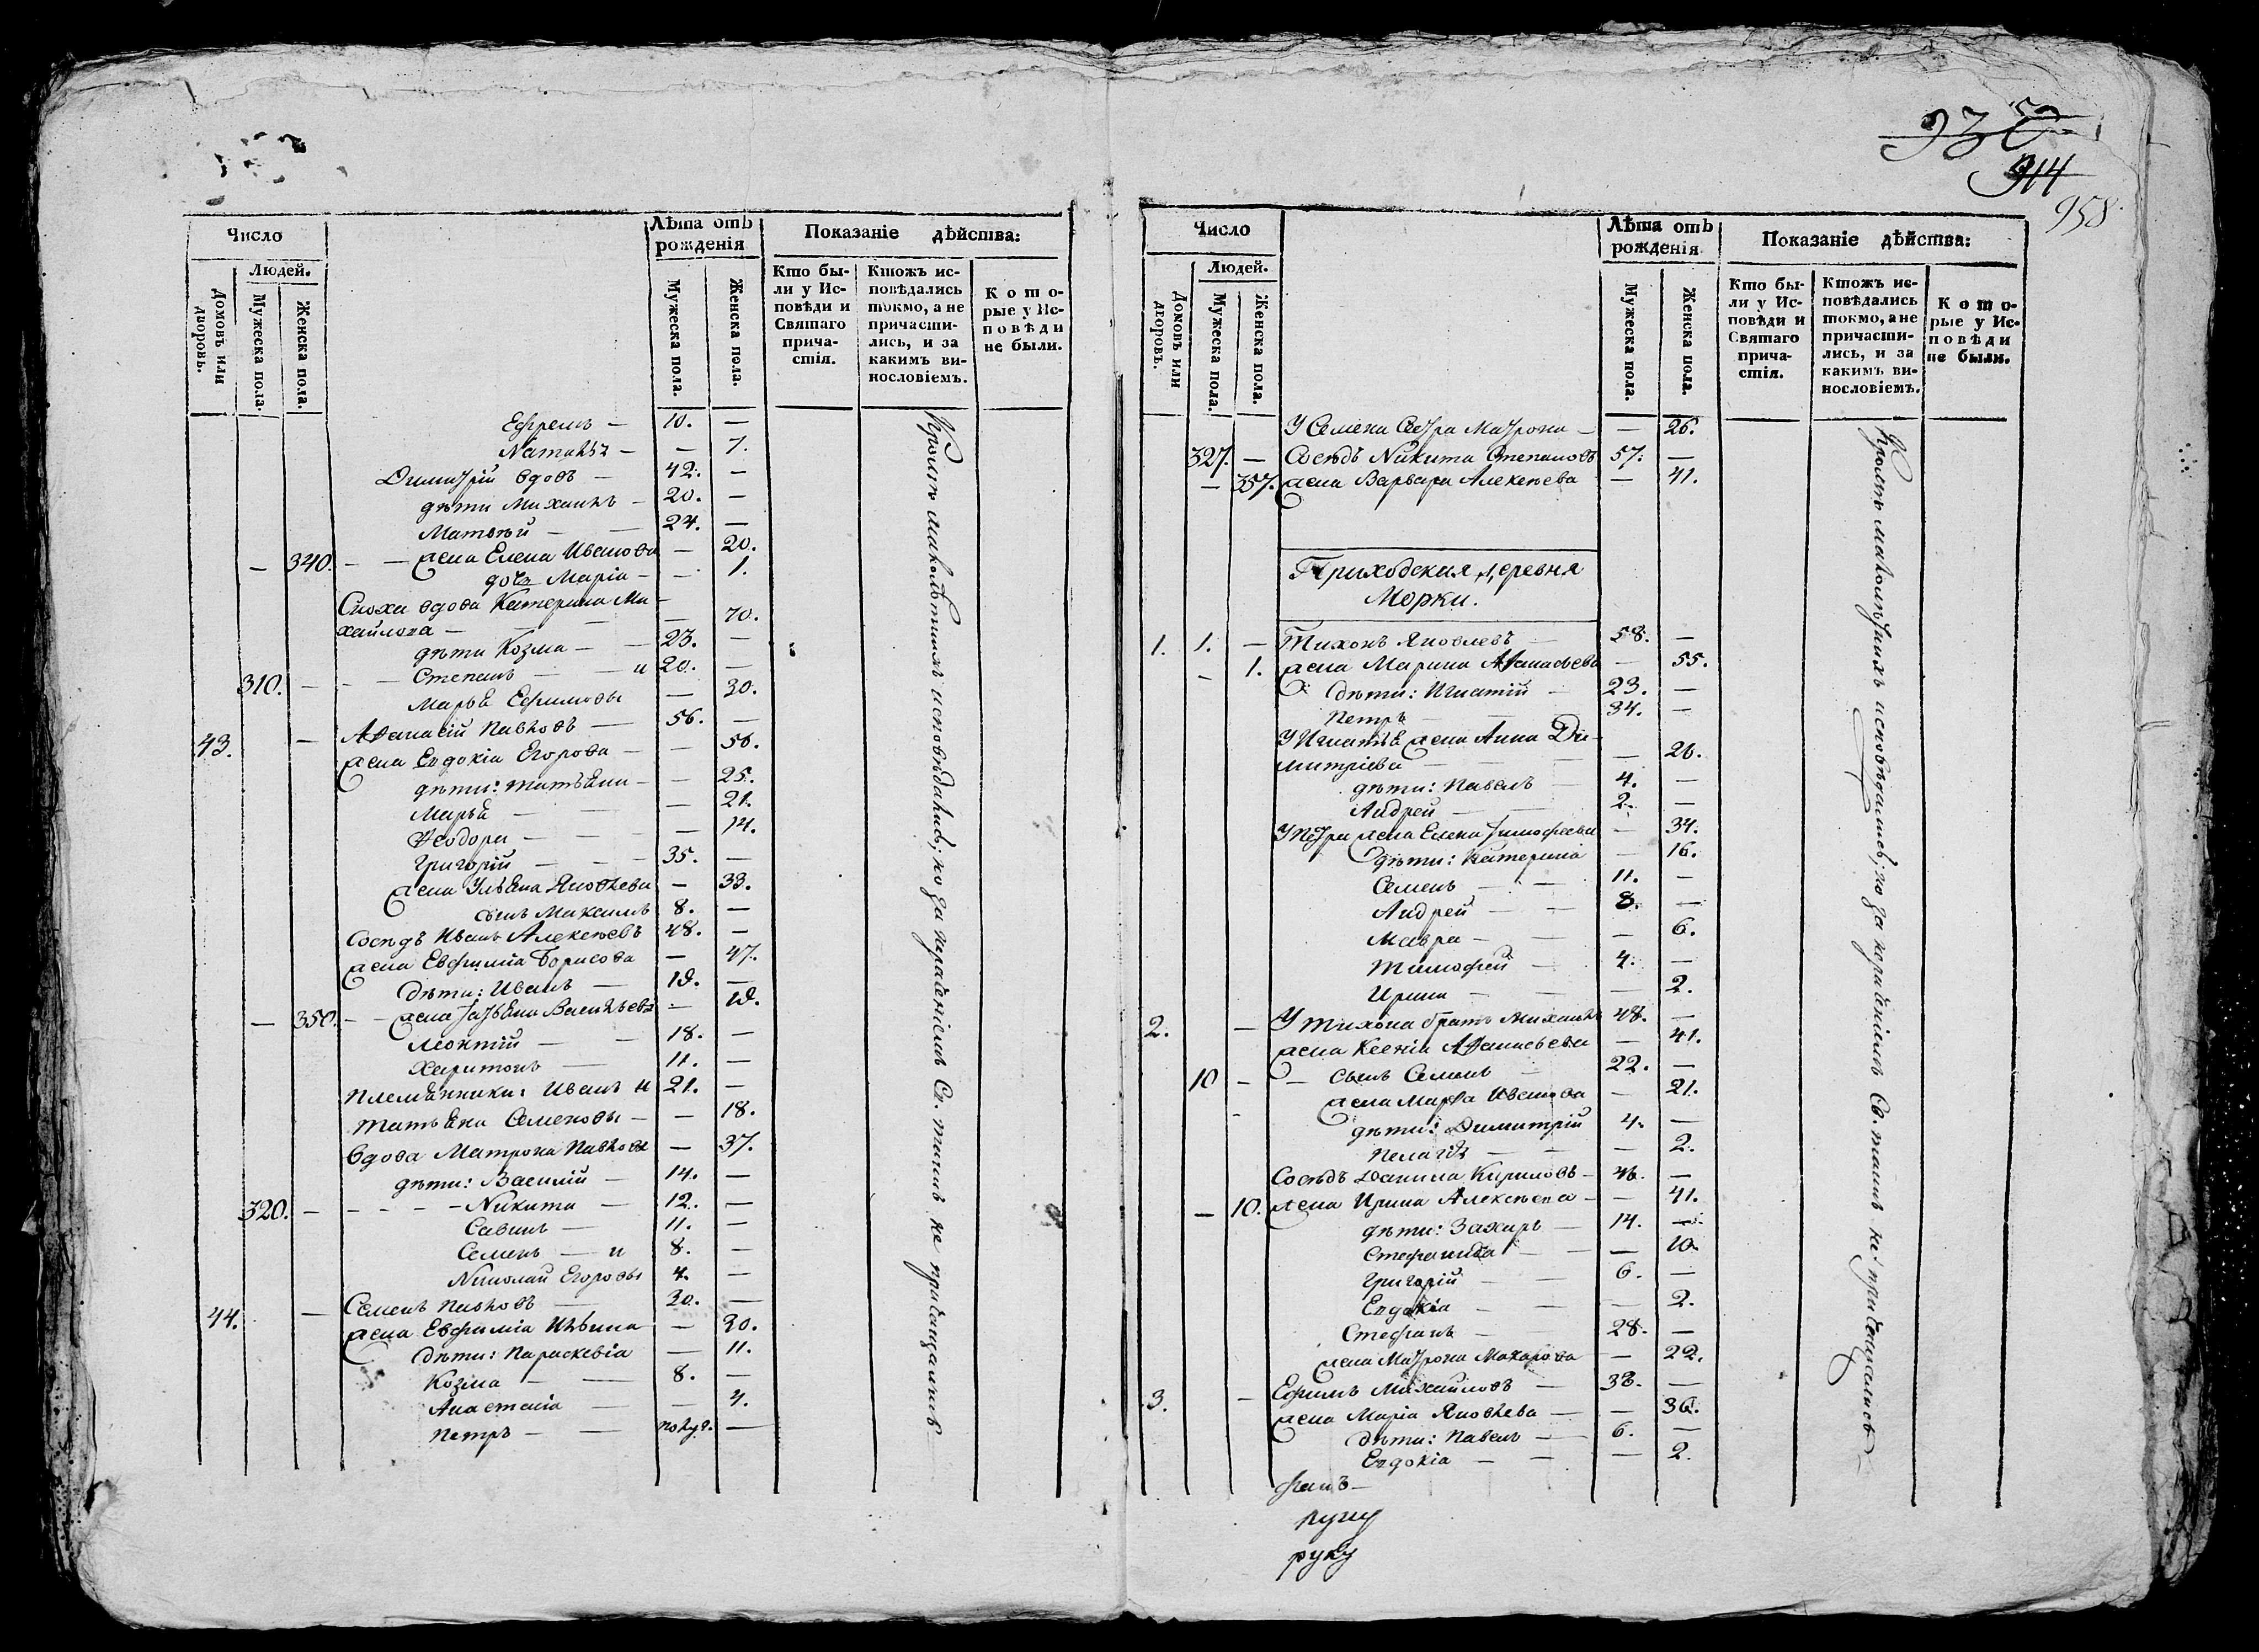 Число
Людей.
Домовъ или дворовъ.
Мужеска пола.
Женска пола.
Лѣта отъ рожденія
Мужеска пола.
Женска пола.
Показаніе дѣйства:
Кто бы-
ли у Ис-
повѣди и
Святаго
прича-
стія.
Ктожъ ис-
повѣдались
токмо, а не
причасти-
лись, и за
какимъ ви-
нословіемъ.
Кото-
рые у Ис-
повѣди
не были.
Ефремъ — 10. —
Наталья — — 7.
Димитрій вдовъ — 42. —
дѣти Михаилъ — 20. —
Матвѣй — — 24. —
— 340. — — жена Елена Иванова — 20.
дочь Марія — — 1.
Сноха вдова Катерина Ми-
хайлова — — — — 70.
дѣти Козма — — 23. —
310. — — — Степанъ — — и 20. —
Марья Ефимовы — 30.
43. — Афанасій Павловъ — 56. —
жена Евдокія Егорова — — 56.
дѣти: Татьяна — — 25.
Марья — — 21.
Феодора — — — — 14.
Григорій — — — 35. —
жена Ульяна Яковлева — 33.
сынъ Максимъ 8. —
Сосѣдъ Иванъ Алексѣевъ 48. —
жена Евфимія Борисова — 47.
дѣти: Иванъ — 19. —
— 350. — — жена Татьяна Васильева — 19.
Леонтій — — 18. —
Харитонъ — 11. —
Племянники: Иванъ и 21. —
Татьяна Семеновы — — 18.
Вдова Матрона Павлова — 37.
дѣти: Василій — 14. —
320. — — — — — Никита — 12. —
Савинъ — 11. —
Семенъ — и 8. —
Николай Егоровы 4. —
44. — Семенъ Павловъ — 30. —
жена Евфимія Ильина — 30.
дѣти: Параскевія — 11.
Козма — — 8. —
Анастасія — — 4.
Петръ — — полуг. —
Кромѣ малолѣтнихъ исповѣдались, но за нерадѣніемъ Св. таинъ не причащались
930
914
958
Число
Людей.
Домовъ или дворовъ.
Мужеска пола.
Женска пола.
Лѣта отъ рожденія
Мужеска пола.
Женска пола.
Показаніе дѣйства:
Кто бы-
ли у Ис-
повѣди и
Святаго
прича-
стія.
Ктожъ ис-
повѣдались
токмо, а не
причасти-
лись, и за
какимъ ви-
нословіемъ.
Кото-
рые у Ис-
повѣди
не были.
У Семена Сестра Матрона — — 26.
327. — Сосѣдъ Никита Степановъ 57. —
— 357. жена Варвара Алексѣева — 41.
Приходская деревня
Морки.
1. 1. — Тихонъ Яковлевъ — 58. —
— 1. жена Марина Афанасьева — 55.
дѣти: Игнатій — 23. —
Петръ — — 34. —
У Игнатья жена Анна Ди-
митріева — — — — 26.
дѣти: Павелъ — 4. —
Андрей — — 2. —
У Петра жена Елена Тимофеева — 34.
дѣти: Катерина — 16.
Семенъ — — 11. —
Андрей — — 8. —
Мавра — — — 6.
Тимофей — 4. —
Ирина — — — 2.
2. — У Тихона братъ Михаилъ 48. —
жена Ксенія Афанасьева — 41.
10 — — сынъ Семенъ — 22. —
жена Марфа Иванова — 21.
дѣти: Димитрій 4. —
Пелагія — — — 2.
Сосѣдъ Данила Кириловъ — 46. —
— 10. жена Ирина Алексѣева — — 41.
дѣти: Захаръ — 14. —
Стефанида — — — 10.
Григорій — — 6. —
Евдокія — — — 2.
Стефанъ — — 28. —
жена Матрона Макарова — 22.
3. — Ефимъ Михайловъ — 38. —
жена Марія Яковлева — — 36.
дѣти: Павелъ — 6. —
Евдокія — — — 2.
Кромѣ малолѣтнихъ исповѣдались, но за нерадѣніемъ Св. таинъ не причащались
фанъ—
руку